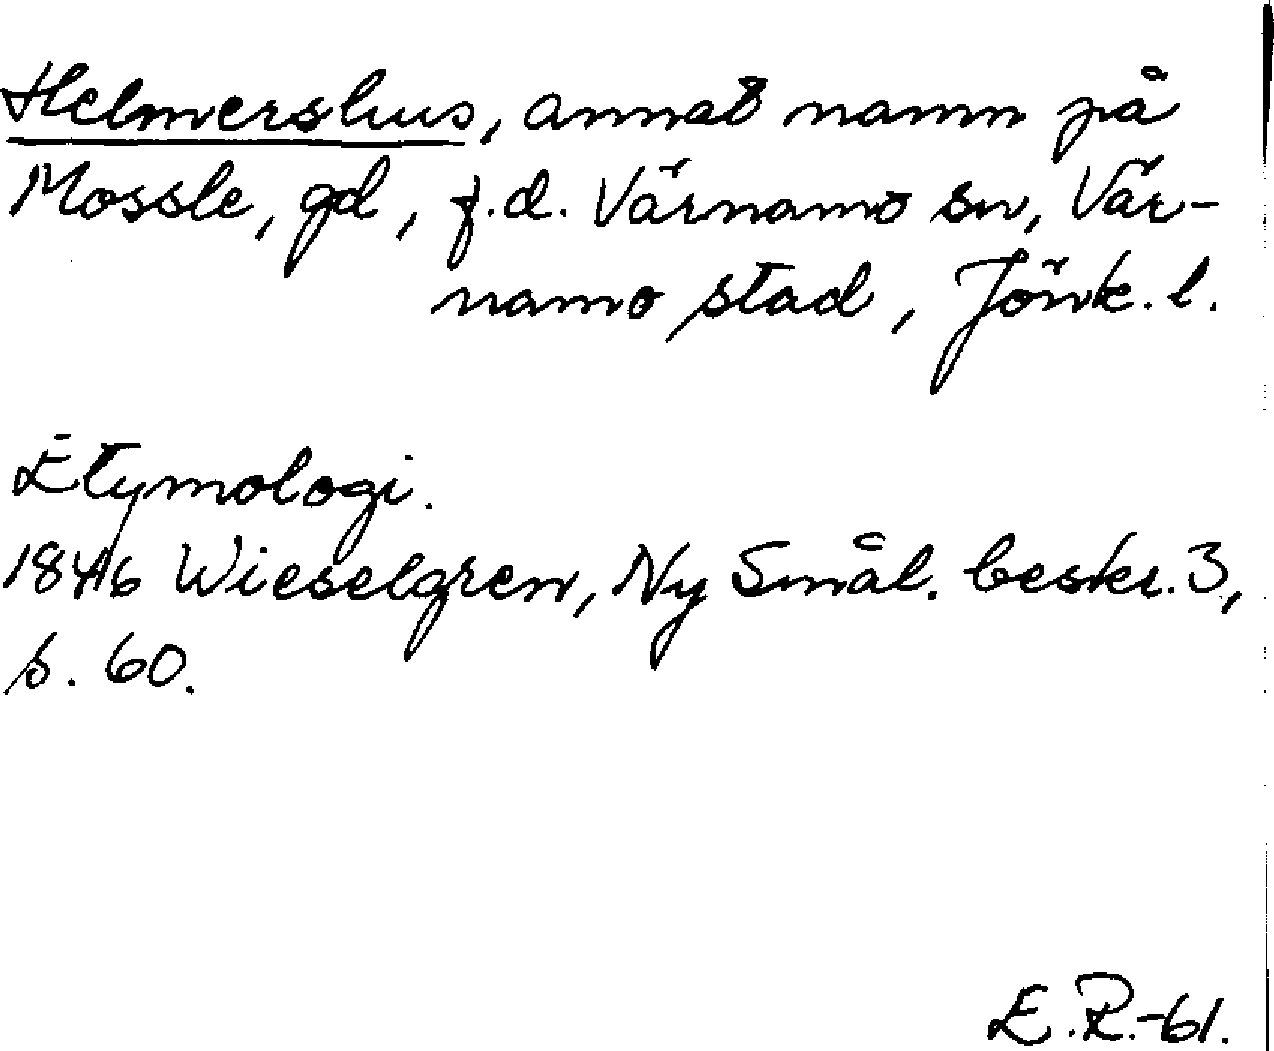 Helmershus, annat namn på
Mossle, gd, f.d. Värnamo sn, Vär-
namo stad, Jönk. l.
Etymologi.
1846 Wieselgren, Ny Smål. beskr. 3,
s. 60.
E.R.-61.